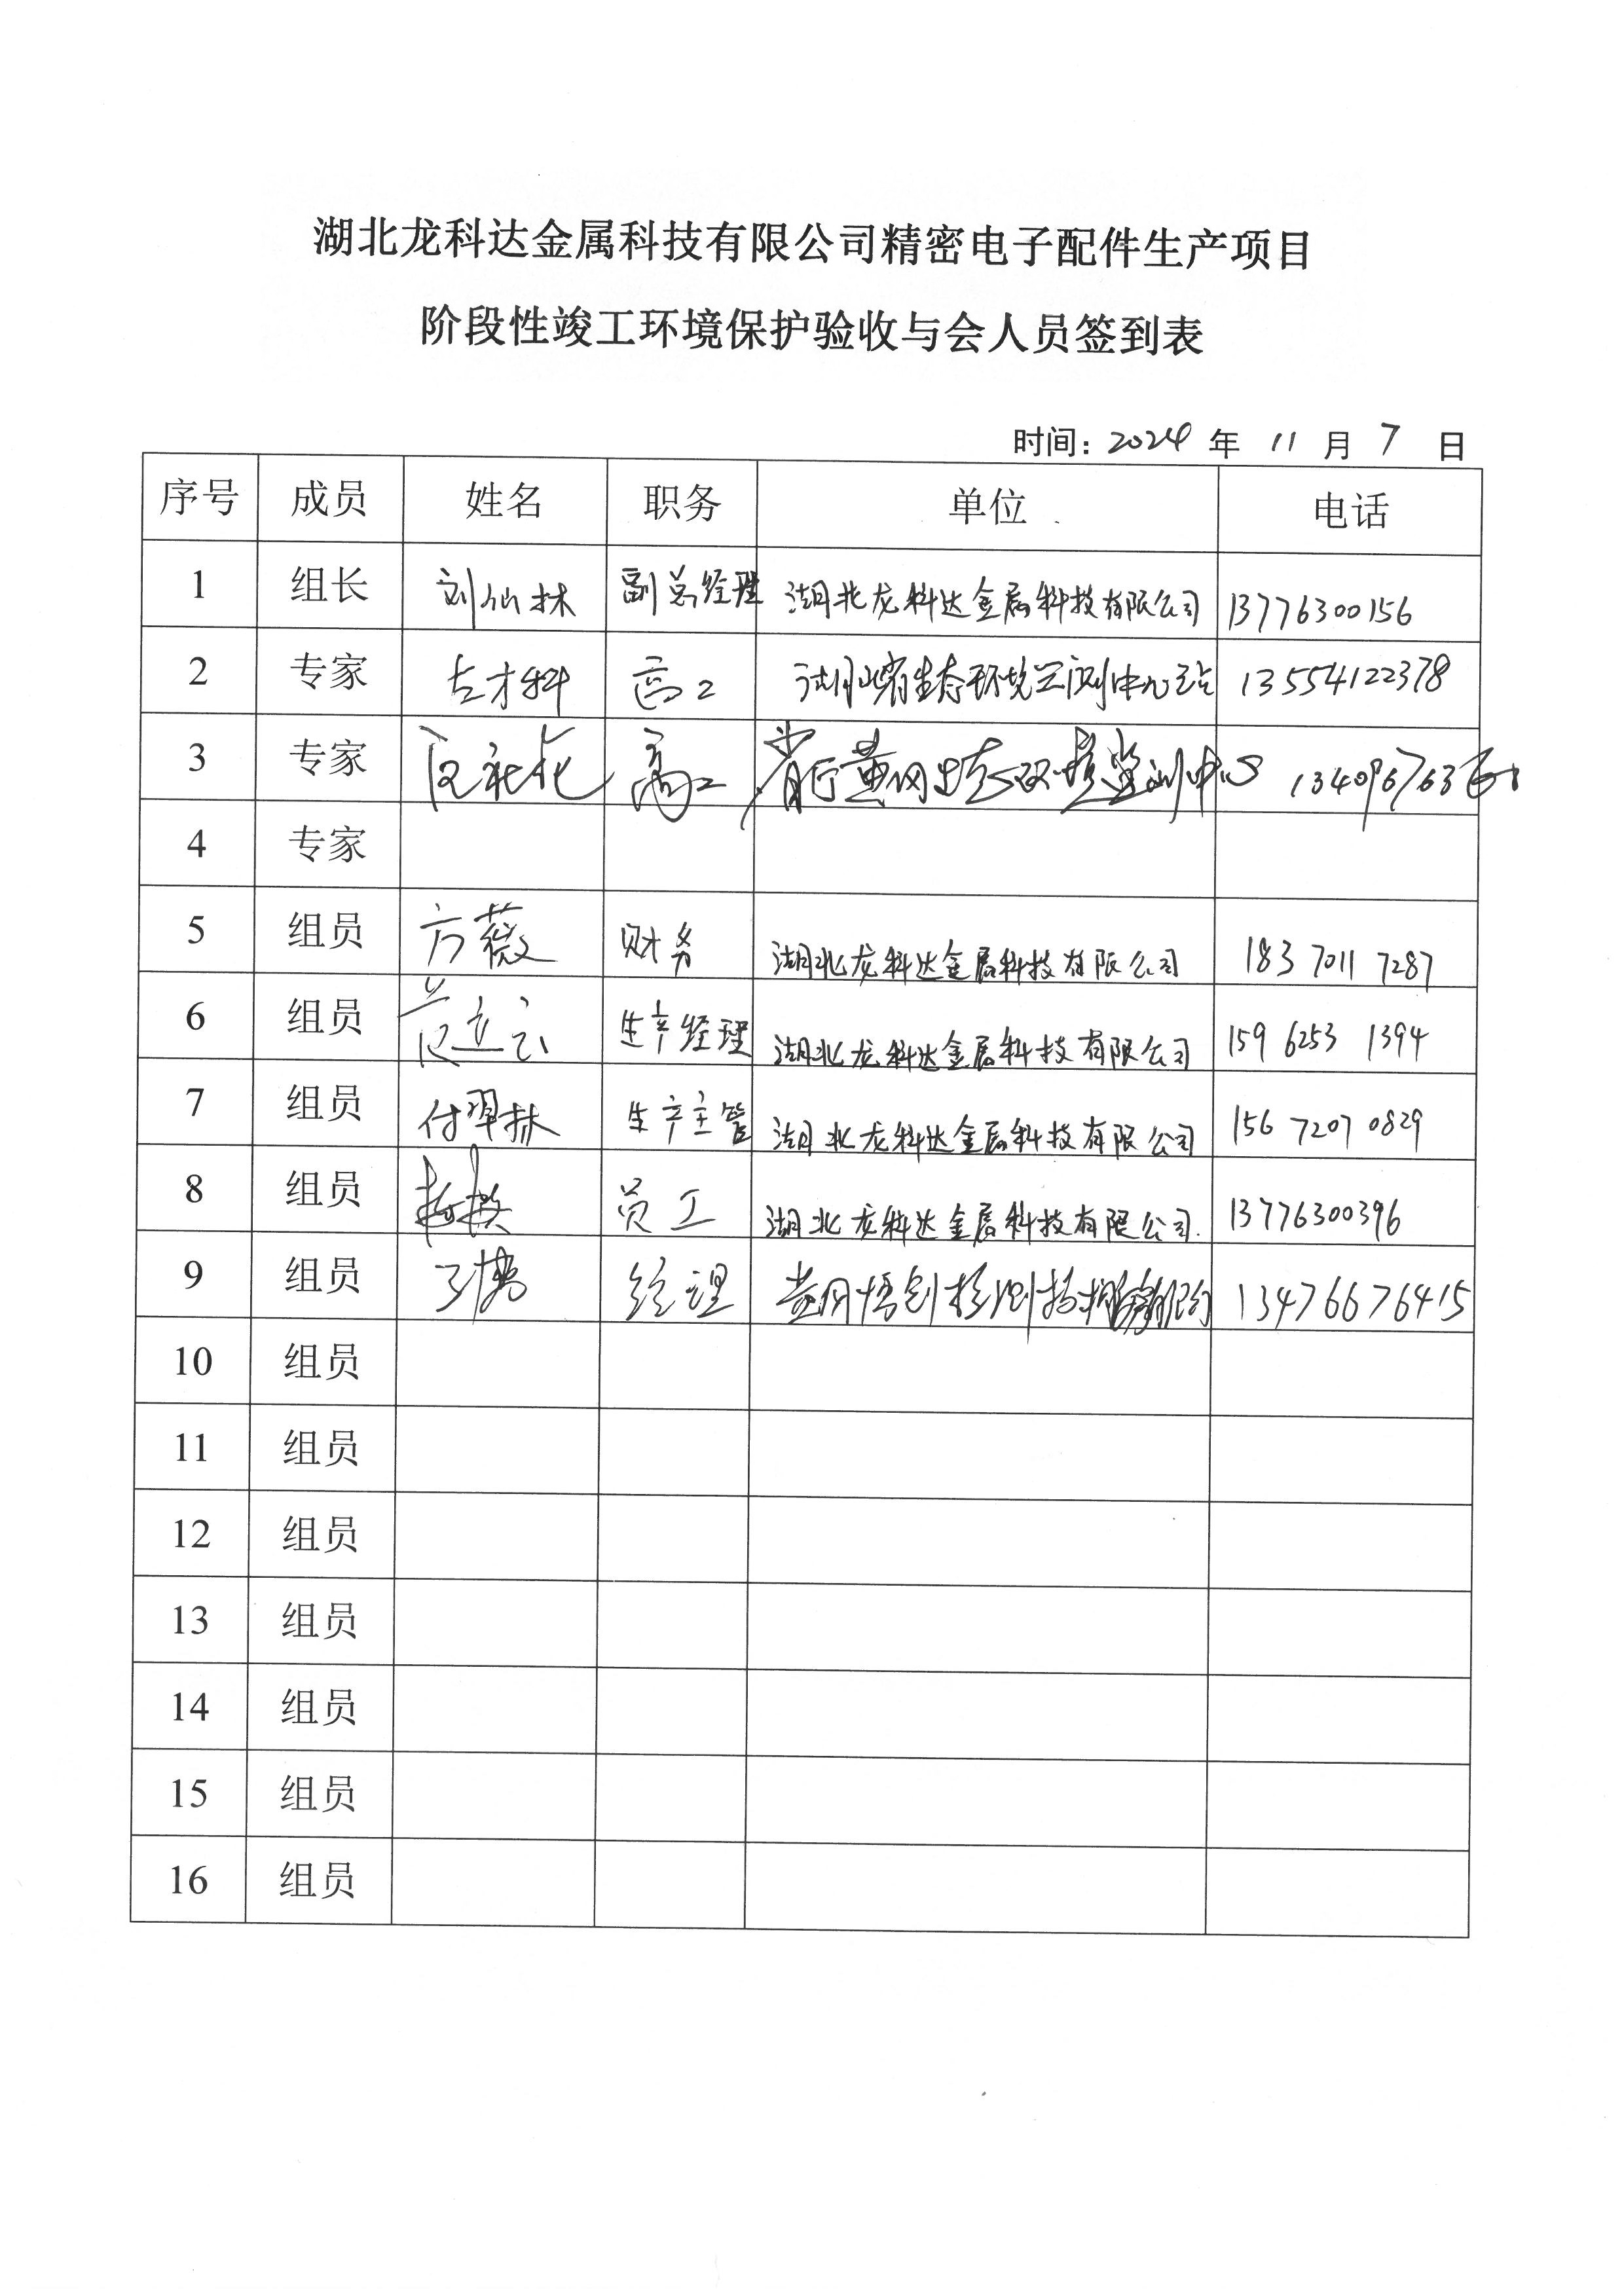 湖北龙科达金属科技有限公司精密电子配件生产项目
阶段性竣工环境保护验收与会人员签到表
时间：2024 年 11 月 7 日
序号 成员 姓名 职务 单位 电话
1 组长 刘仙林 副总经理 湖北龙科达金属科技有限公司 13776300156
2 专家 古才科 高工 湖北省生态环境监测中心站 13554122378
3 专家 高工 省厅黄冈生态环境监测中心
4 专家
5 组员 方薇 财务 湖北龙科达金属科技有限公司 183 7011 7287
6 组员 范立云 生产经理 湖北龙科达金属科技有限公司 159 6253 1394
7 组员 付翠林 生产主管 湖北龙科达金属科技有限公司 156 7207 0829
8 组员 员工 湖北龙科达金属科技有限公司. 13776300396
9 组员 经理 黄冈博创检测技术服务有限公司 13476676415
10 组员
11 组员
12 组员
13 组员
14 组员
15 组员
16 组员